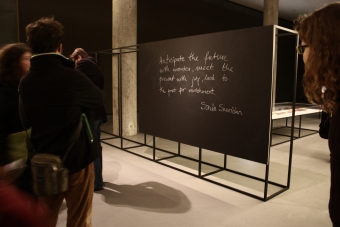 Anticipate the future
with wonder, meet the
present with joy, look to
the past for nourishment.